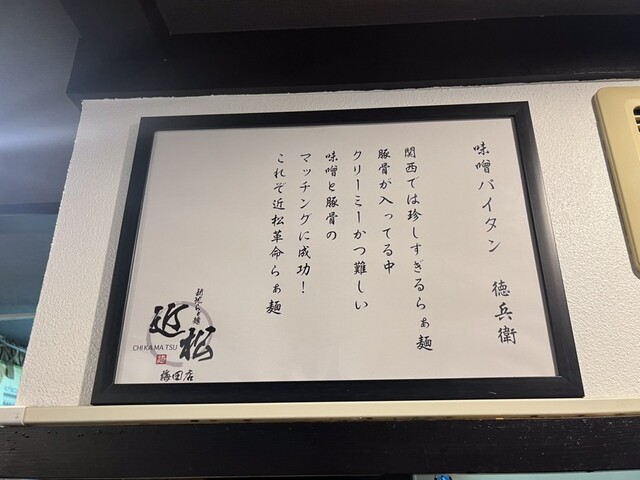 味噌パイタン　徳兵衛
関西では珍しすぎるらぁ麺
豚骨が入ってる中
クリーミーかつ難しい
味噌と豚骨の
マッチングに成功！
これぞ近松革命らぁ麺
近松
CHIKAMATSU
梅田店